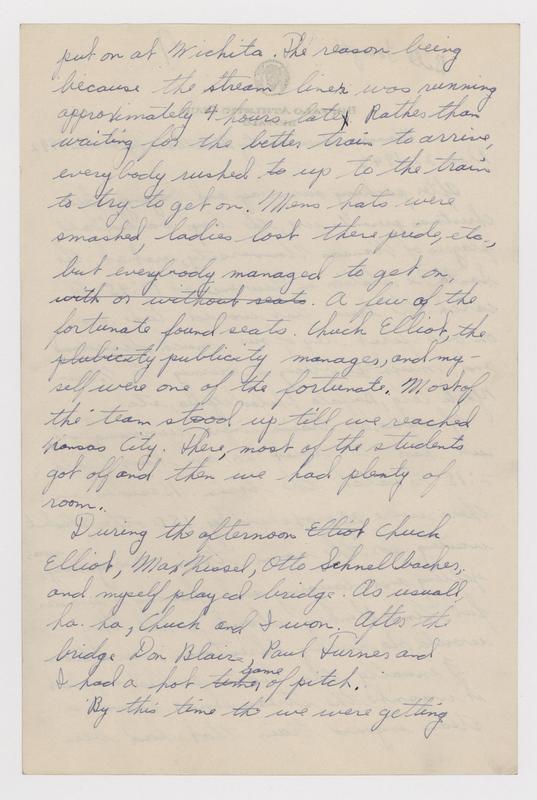 put on at Wichita. The reason being
because the stream liner was running
approximately 4 hours late. Rather than
waiting for the better train to arrive,
everybody rushed to up to the train
to try to get on. Mens hats were
smashed, ladies lost there pride, etc.,
but everybody managed to get on,
with or without seats. A few of the
fortunate found seats. Chuck Elliot, the
plubicity publicity manager, and my-
self were one of the fortunate. Most of
the team stood up till we reached
Kansas City. There, most of the students
got off and then we had plenty of
room.
During the afternoon Elliot Chuck
Elliot, Max Kissel, Otto Schnellbacher,
and myself played bridge. As usual,
ha. ha, Chuck and I won. After the
bridge Don Blair, Paul Turner and
game
I had a hot time, of pitch.
By this time th we were getting